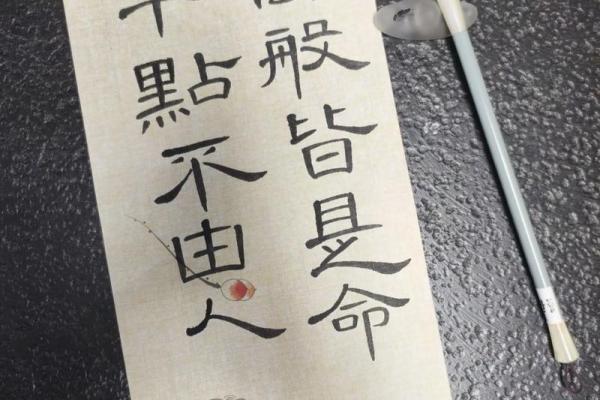 般皆是命
點不由人